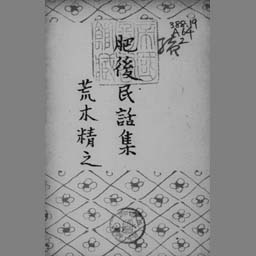 388.19
A64
2
肥後民話集
荒木精之